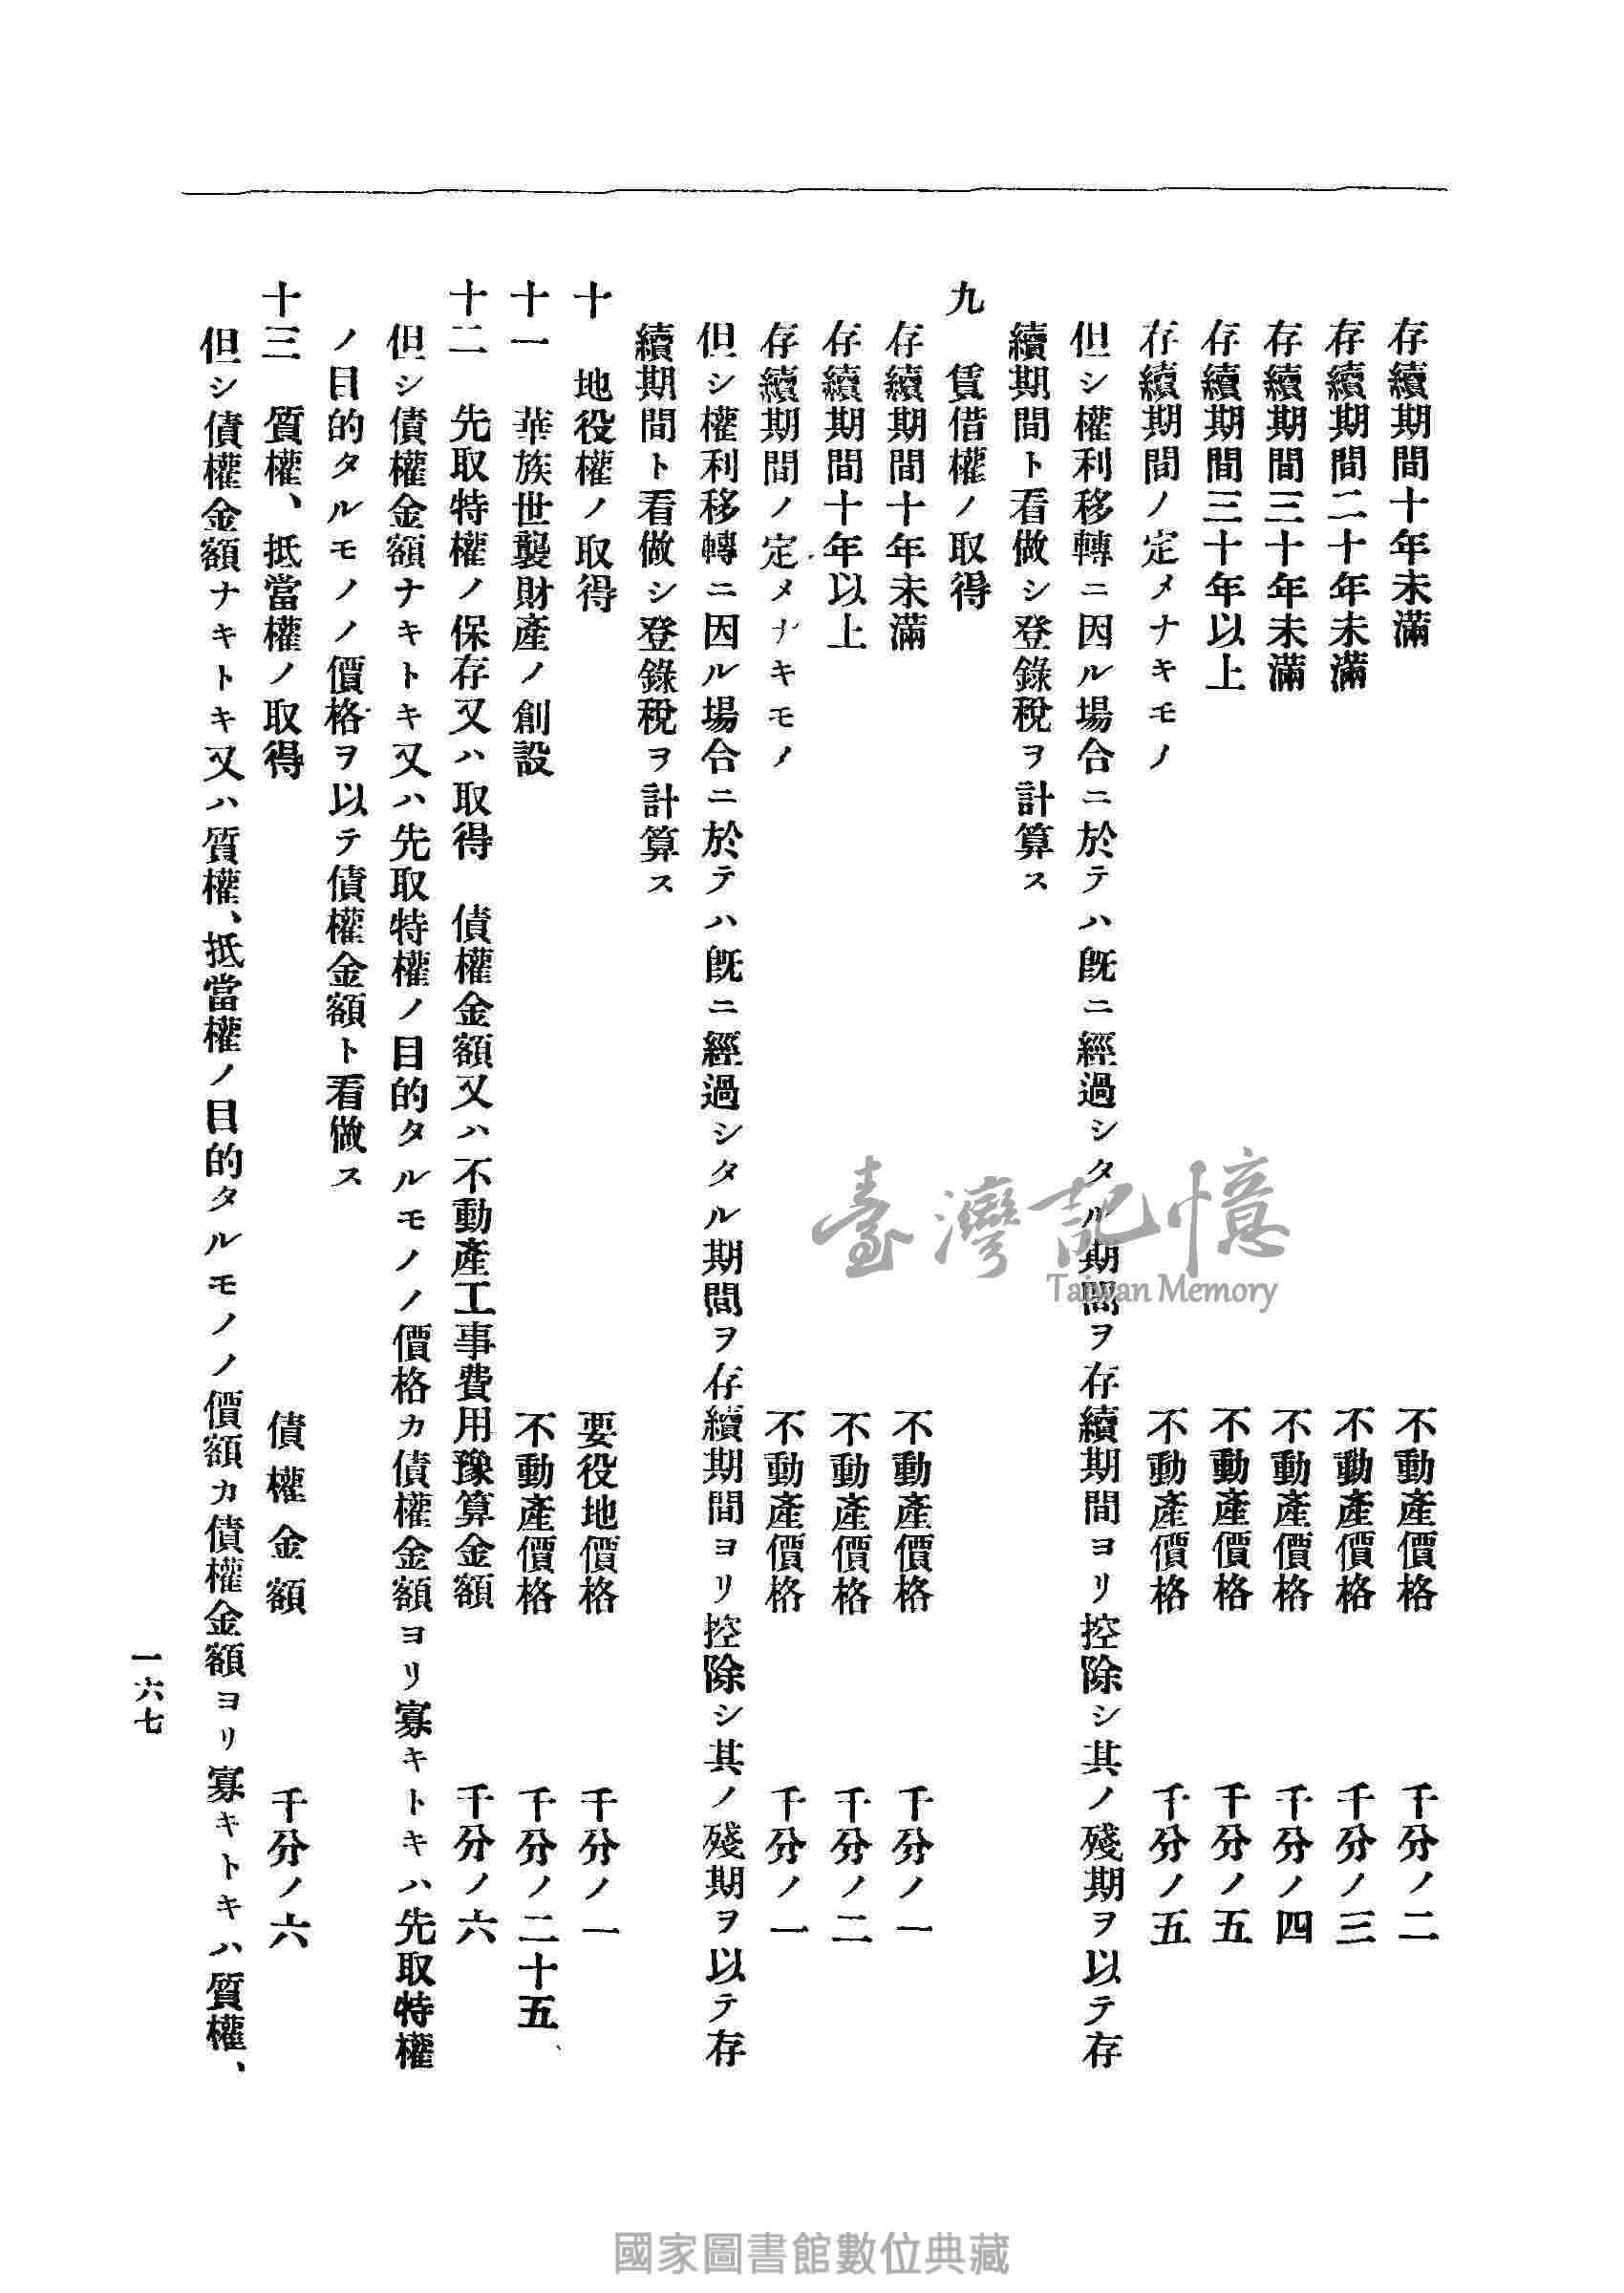 存續期間十年未滿　不動產價格　千分ノ二
存續期間二十年未滿　不動產價格　千分ノ三
存續期間三十年未滿　不動產價格　千分ノ四
存續期間三十年以上　不動產價格　千分ノ五
存續期間ノ定メナキモノ　不動產價格　千分ノ五
但シ權利移轉ニ因ル場合ニ於テハ既ニ經過シタル期間ヲ存續期間ヨリ控除シ其ノ殘期ヲ以テ存
續期間ト看做シ登錄稅ヲ計算ス
九　賃借權ノ取得
存續期間十年未滿　不動產價格　千分ノ一
存續期間十年以上　不動產價格　千分ノ二
存續期間ノ定メナキモノ　不動產價格　千分ノ一
但シ權利移轉ニ因ル場合ニ於テハ既ニ經過シタル期間ヲ存續期間ヨリ控除シ其ノ殘期ヲ以テ存
續期間ト看做シ登錄稅ヲ計算ス
十　地役權ノ取得　要役地價格　千分ノ一
十一　華族世襲財產ノ創設　不動產價格　千分ノ二十五
十二　先取特權ノ保存又ハ取得　債權金額又ハ不動產工事費用豫算金額　千分ノ六
但シ債權金額ナキトキ又ハ先取特權ノ目的タルモノノ價格カ債權金額ヨリ寡キトキハ先取特權
ノ目的タルモノノ價格ヲ以テ債權金額ト看做ス
十三　質權、抵當權ノ取得　債權金額　千分ノ六
但シ債權金額ナキトキ又ハ質權、抵當權ノ目的タルモノノ價額カ債權金額ヨリ寡キトキハ質權、
一六七
臺灣記憶
Taiwan Memory
國家圖書館數位典藏